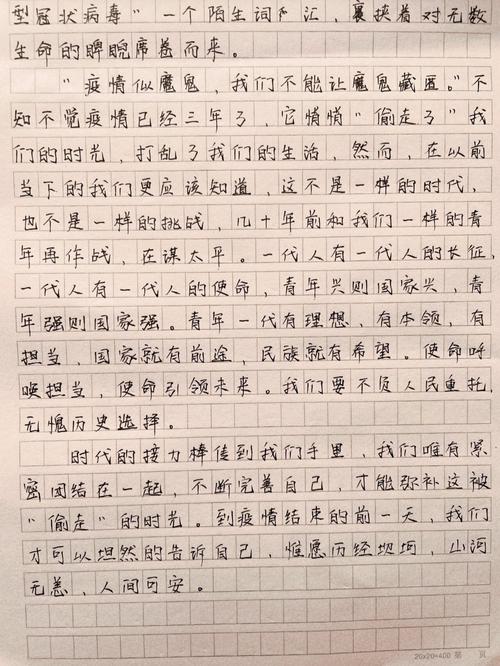 型冠状病毒”一个陌生词汇，裹挟着对无数
生命的睥睨席卷而来。
“疫情似魔鬼，我们不能让魔鬼藏匿。”不
知不觉疫情已经三年了，它悄悄“偷走了”我
们的时光，打乱了我们的生活，然而，在以前
当下的我们更应该知道，这不是一样的时代，
也不是一样的挑战，几十年前和我们一样的青
年再作战，在谋太平。一代人有一代人的长征，
一代人有一代人的使命，青年兴则国家兴，青
年强则国家强。青年一代有理想，有本领，有
担当，国家就有前途，民族就有希望。使命呼
唤担当，使命引领未来。我们要不负人民重托，
无愧历史选择。
时代的接力棒传到我们手里，我们唯有紧
密团结在一起，不断完善自己，才能弥补这被
“偷走”的时光。到疫情结束的前一天，我们
才可以坦然的告诉自己，惟愿历经坎坷，山河
无恙，人间可安。
20×20=400 第 页